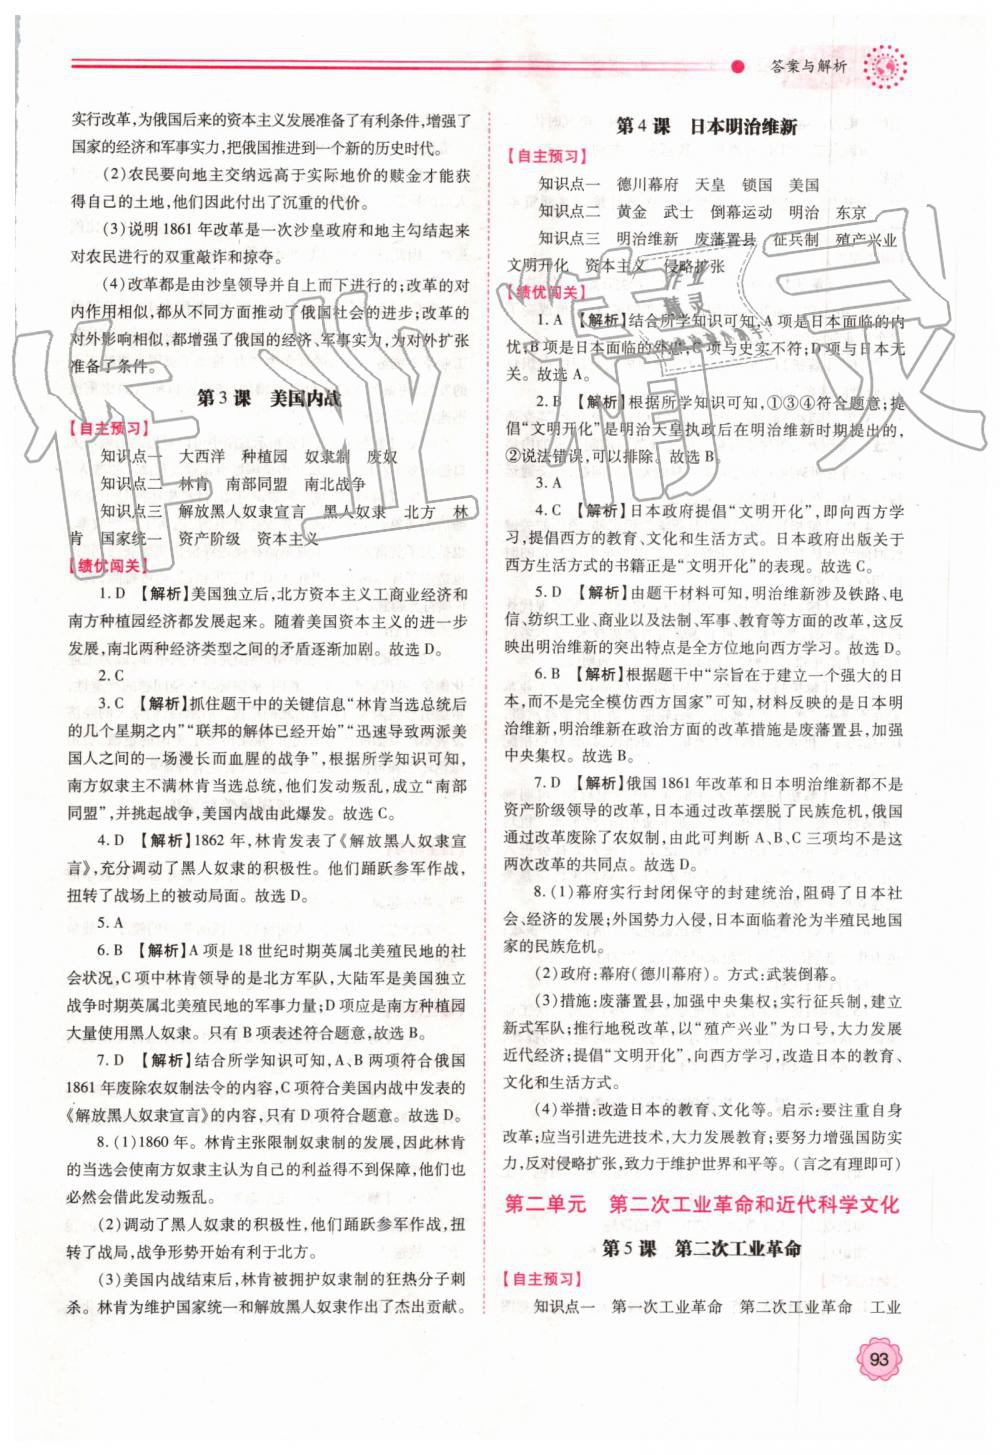 答案与解析
实行改革,为俄国后来的资本主义发展准备了有利条件,增强了
国家的经济和军事实力,把俄国推进到一个新的历史时代。
(2)农民要向地主交纳远高于实际地价的赎金才能获
得自己的土地,他们因此付出了沉重的代价。
(3)说明1861年改革是一次沙皇政府和地主勾结起来
对农民进行的双重敲诈和掠夺。
(4)改革都是由沙皇领导并自上而下进行的;改革的对
内作用相似,都从不同方面推动了俄国社会的进步;改革的
对外影响相似,都增强了俄国的经济、军事实力,为对外扩张
准备了条件。
第3课 美国内战
【自主预习】
知识点一 大西洋 种植园 奴隶制 废奴
知识点二 林肯 南部同盟 南北战争
知识点三 解放黑人奴隶宣言 黑人奴隶 北方 林
肯 国家统一 资产阶级 资本主义
【绩优闯关】
1.D 【解析】美国独立后,北方资本主义工商业经济和
南方种植园经济都发展起来。随着美国资本主义的进一步
发展,南北两种经济类型之间的矛盾逐渐加剧。故选D。
2.C
3.C 【解析】抓住题干中的关键信息“林肯当选总统后
的几个星期之内”“联邦的解体已经开始”“迅速导致两派美
国人之间的一场漫长而血腥的战争”,根据所学知识可知,
南方奴隶主不满林肯当选总统,他们发动叛乱,成立“南部
同盟”,并挑起战争,美国内战由此爆发。故选C。
4.D 【解析】1862年,林肯发表了《解放黑人奴隶宣
言》,充分调动了黑人奴隶的积极性。他们踊跃参军作战,
扭转了战场上的被动局面。故选D。
5.A
6.B 【解析】A项是18世纪时期英属北美殖民地的社
会状况,C项中林肯领导的是北方军队,大陆军是美国独立
战争时期英属北美殖民地的军事力量;D项应是南方种植园
大量使用黑人奴隶。只有B项表述符合题意,故选B。
7.D 【解析】结合所学知识可知,A、B两项符合俄国
1861年废除农奴制法令的内容,C项符合美国内战中发表的
《解放黑人奴隶宣言》的内容,只有D项符合题意。故选D。
8.(1)1860年。林肯主张限制奴隶制的发展,因此林肯
的当选会使南方奴隶主认为自己的利益得不到保障,他们也
必然会借此发动叛乱。
(2)调动了黑人奴隶的积极性,使其踊跃参军作战,扭
转了战局,战争形势开始有利于北方。
(3)美国内战结束后,林肯被拥护奴隶制的狂热分子刺
杀。林肯为维护国家统一和解放黑人奴隶作出了杰出贡献。
第4课 日本明治维新
【自主预习】
知识点一 德川幕府 天皇 锁国 美国
知识点二 黄金 武士 倒幕运动 明治 东京
知识点三 明治维新 废藩置县 征兵制 殖产兴业
文明开化 资本主义 侵略扩张
【绩优闯关】
1.A 【解析】结合所学知识可知,A项是日本面临的内
忧,B项是日本面临的外患,C项与史实不符;D项与日本无
关。故选A。
2.B 【解析】根据所学知识可知,①③④符合题意;提
倡“文明开化”是明治天皇执政后在明治维新时期提出的,
②说法错误,可以排除。故选B。
3.A
4.C 【解析】日本政府提倡“文明开化”,即向西方学
习,提倡西方的教育、文化和生活方式。日本政府出版关于
西方生活方式的书籍正是“文明开化”的表现。故选C。
5.D 【解析】由题干材料可知,明治维新涉及铁路、电
信、纺织工业、商业以及法制、军事、教育等方面的改革,这反
映出明治维新的突出特点是全方位地向西方学习。故选D。
6.B 【解析】根据题干中“宗旨在于建立一个强大的日
本,而不是完全模仿西方国家”可知,材料反映的是日本明
治维新,明治维新在政治方面的改革措施是废藩置县,加强
中央集权。故选B。
7.D 【解析】俄国1861年改革和日本明治维新都不是
资产阶级领导的改革,日本通过改革摆脱了民族危机,俄国
通过改革废除了农奴制,由此可判断A、B、C三项均不是这
两次改革的共同点。故选D。
8.(1)幕府实行封闭保守的封建统治,阻碍了日本社
会、经济的发展;外国势力入侵,日本面临着沦为半殖民地国
家的民族危机。
(2)政府:幕府(德川幕府)。方式:武装倒幕。
(3)措施:废藩置县,加强中央集权;实行征兵制,建立
新式军队;推行地税改革,以“殖产兴业”为口号,大力发展
近代经济;提倡“文明开化”,向西方学习,改造日本的教育、
文化和生活方式。
(4)举措:改造日本的教育、文化等。启示:要注重自身
改革;应当引进先进技术,大力发展教育;要努力增强国防实
力,反对侵略扩张,致力于维护世界和平等。(言之有理即可)
第二单元 第二次工业革命和近代科学文化
第5课 第二次工业革命
【自主预习】
知识点一 第一次工业革命 第二次工业革命 工业
93
作业精灵